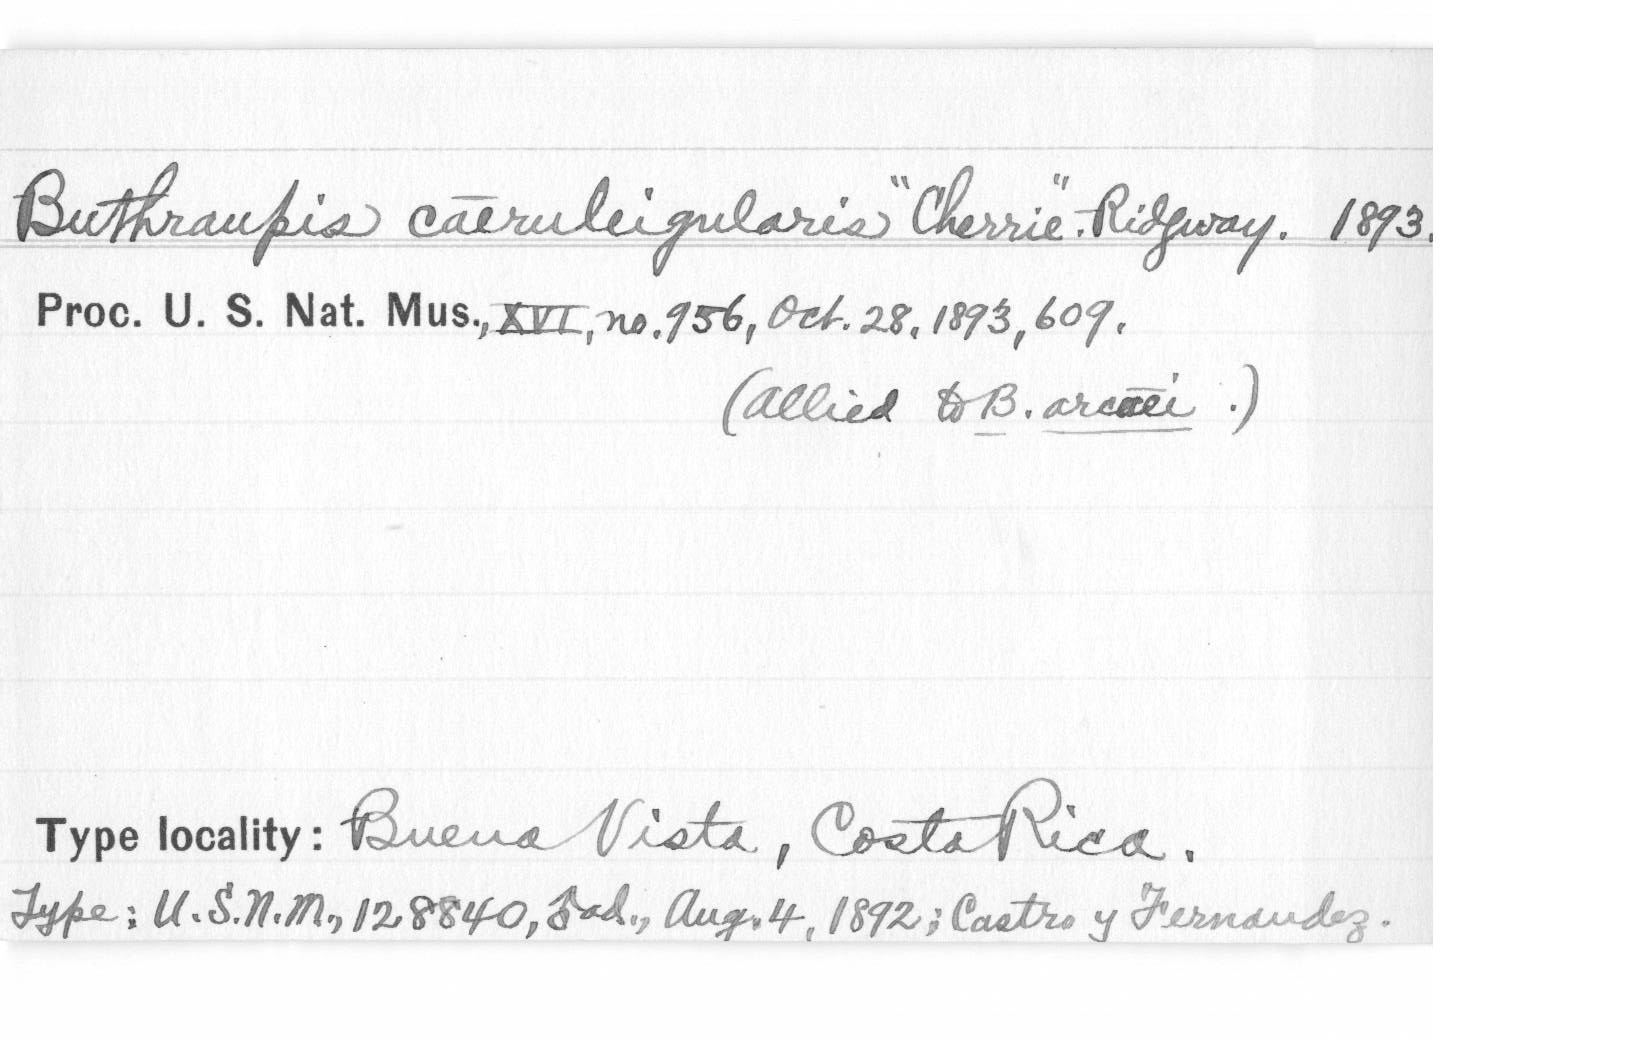 Buthraupis cāeruleigularis "Cherrie". Ridgway. 1893.
Proc. U. S. Nat. Mus., XVI, no. 956, Oct. 28, 1893, 609.
(allied to B. arcāei .)
Type locality: Buena Vista, Costa Rica.
Type: U.S.N.M., 128840, ad., Aug. 4, 1892; Castro y Fernandez.